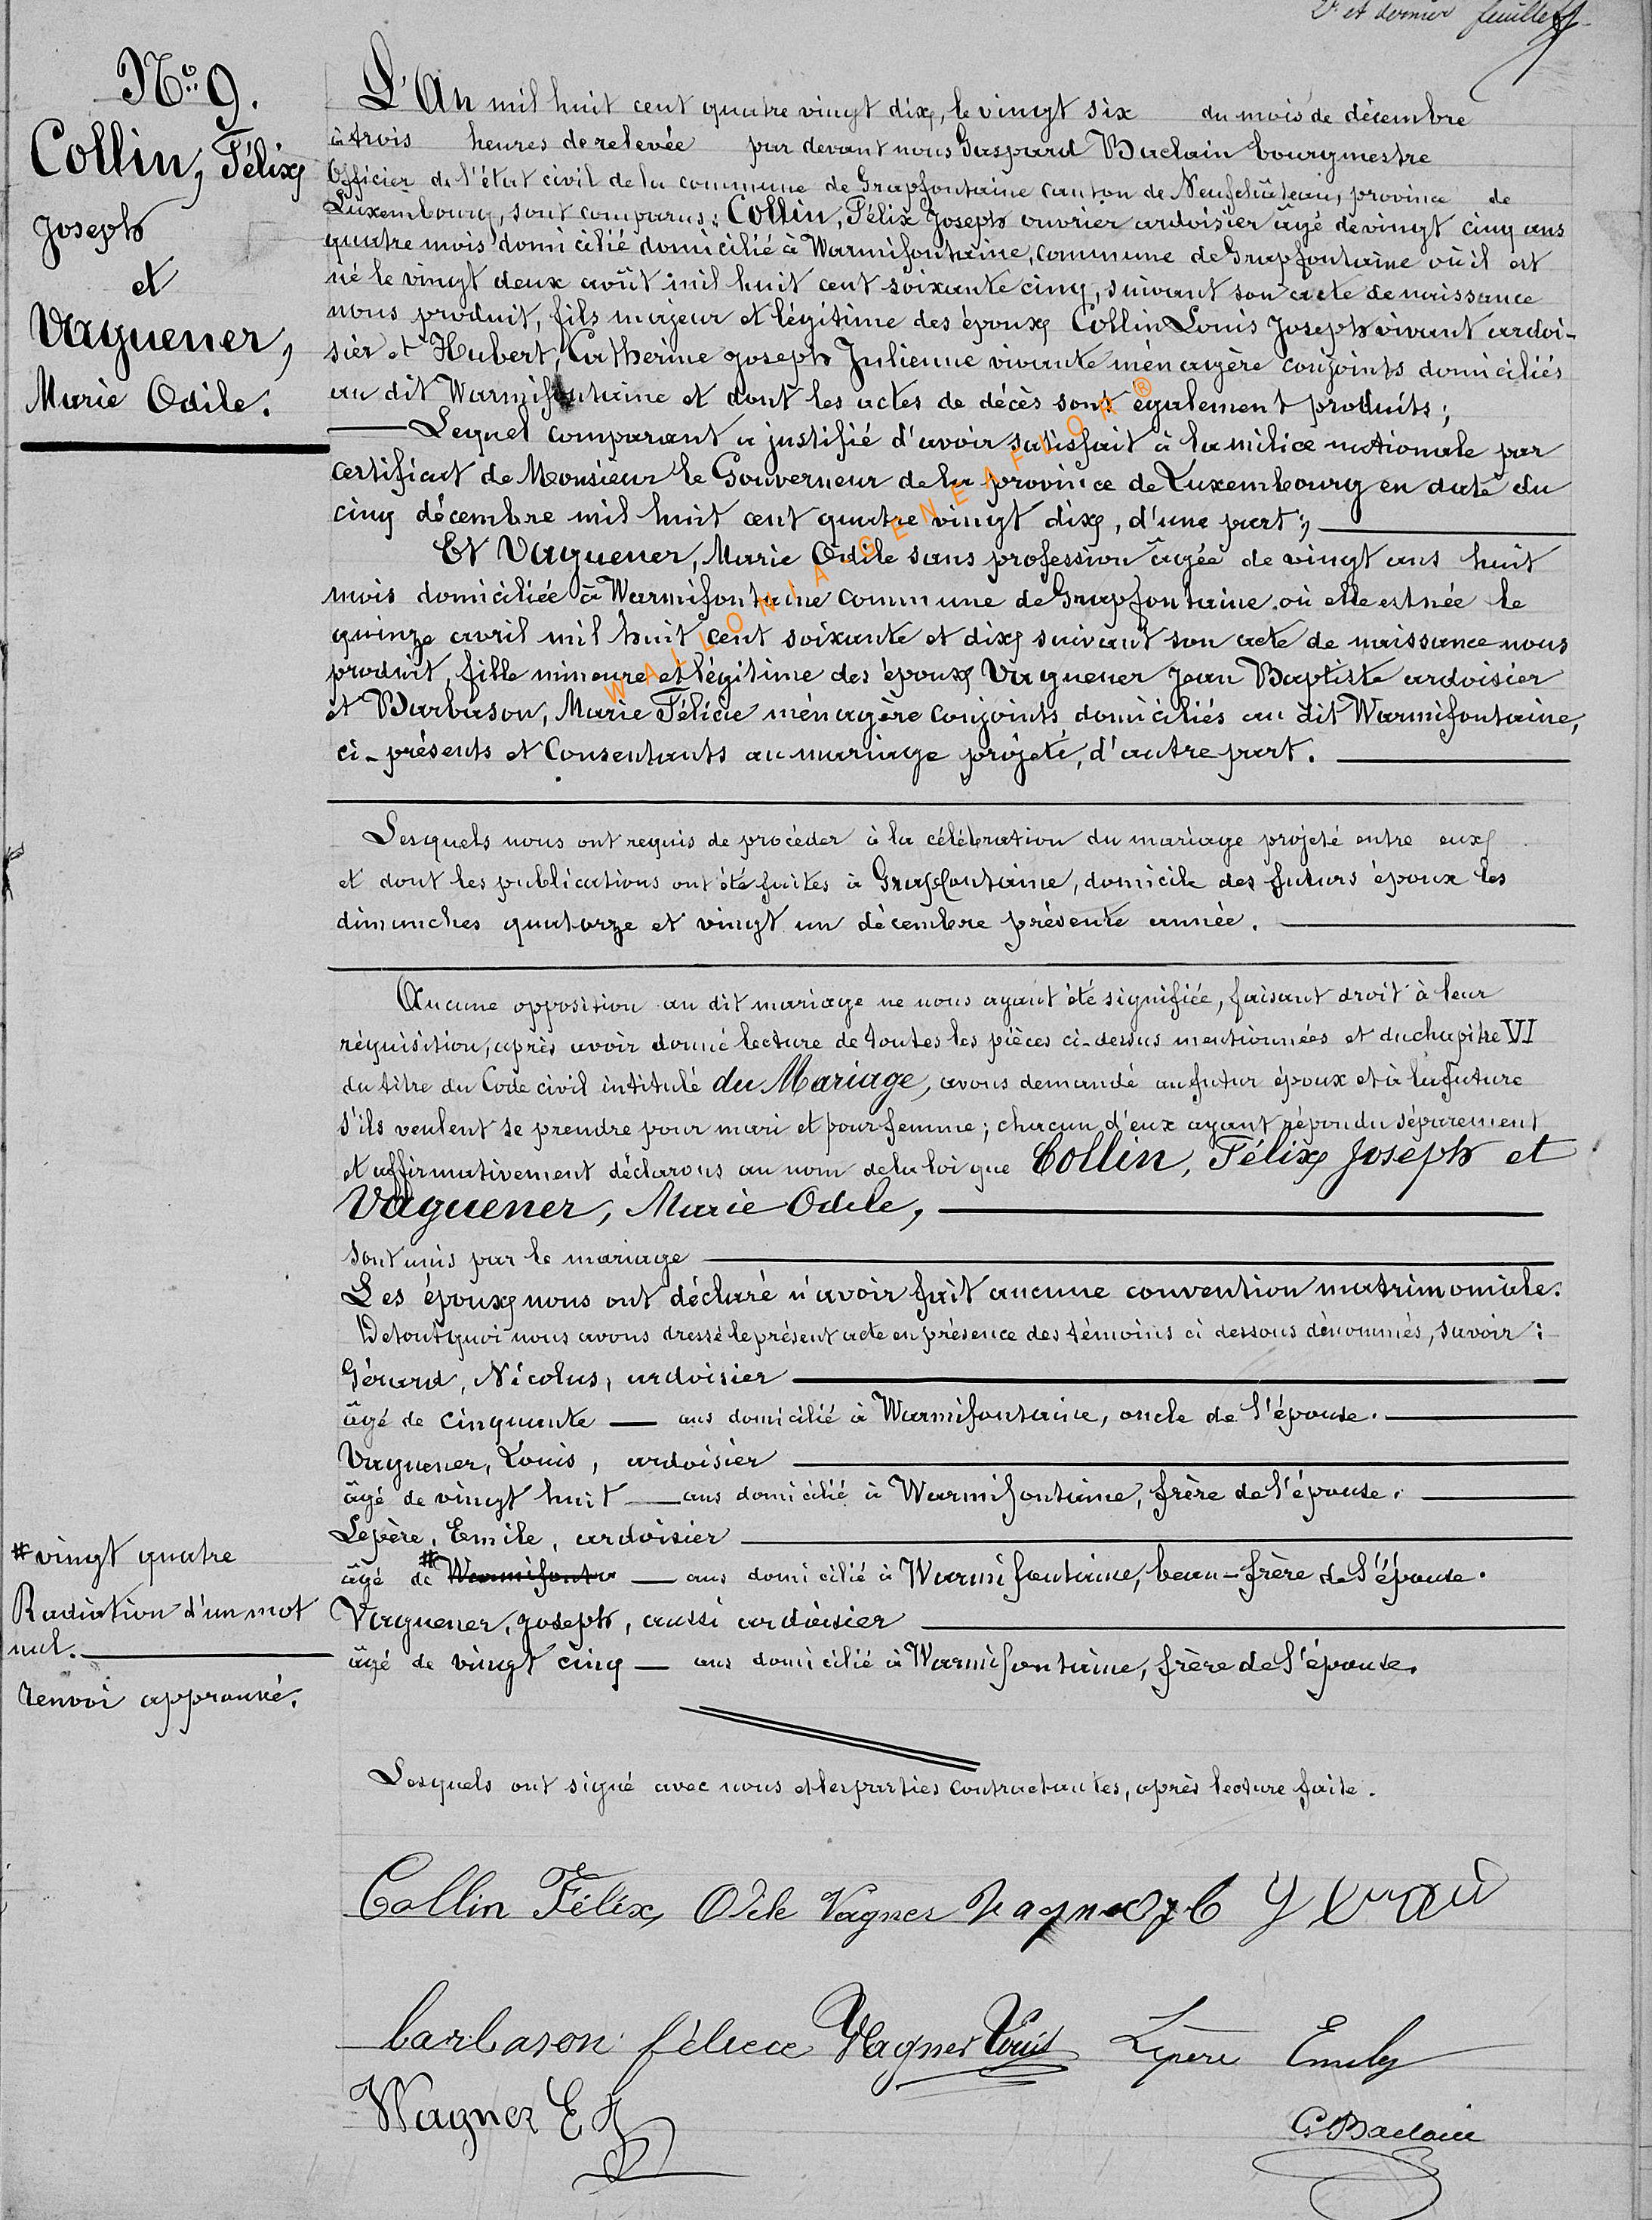 2e et dernier feuillet
No 9.
Collin, Félix
Joseph
et
Vaguener,
Marie Odile.
L'An mil huit cent quatre vingt dix, le vingt six du mois de décembre
à trois heures de relevée par devant nous Gaspard Baclain bourgmestre
Officier de l'état civil de la commune de Grapfontaine canton de Neufchâteau, province de
Luxembourg, sont comparus: Collin, Félix Joseph ouvrier ardoisier âgé de vingt cinq ans
quatre mois domicilié domicilié à Warmifontaine, commune de Grapfontaine où il est
né le vingt deux août mil huit cent soixante cinq, suivant son acte de naissance
nous produit, fils majeur et légitime des époux Collin Louis Joseph vivant ardoi-
sier et Hubert, Catherine Joseph Julienne vivante ménagère conjoints domiciliés
au dit Warmifontaine et dont les actes de décès sont également produits;
Lequel comparant a justifié d'avoir satisfait à la milice nationale par
certificat de Monsieur le Gouverneur de la province de Luxembourg en date du
cinq décembre mil huit cent quatre vingt dix, d'une part;
Et Vaguener, Marie Odile sans profession âgée de vingt ans huit
mois domiciliée à Warmifontaine commune de Grapfontaine où elle est née le
quinze avril mil huit cent soixante et dix suivant son acte de naissance nous
produit, fille mineure et légitime des époux Vaguener Jean Baptiste ardoisier
et Barbason, Marie Félicie ménagère conjoints domiciliés au dit Warmifontaine,
ci-présents et Consentants au mariage projeté, d'autre part.
WALLONIA-GENEAFLOR®
Lesquels nous ont requis de procéder à la célébration du mariage projeté entre eux
et dont les publications ont été faites à Grapfontaine, domicile des futurs époux les
dimanches quatorze et vingt un décembre présente année.
Aucune opposition au dit mariage ne nous ayant été signifiée, faisant droit à leur
réquisition, après avoir donné lecture de toutes les pièces ci-dessus mentionnées et du chapitre VI
du titre du Code civil intitulé du Mariage, avons demandé au futur époux et à la future
s'ils veulent se prendre pour mari et pour femme; chacun d'eux ayant répondu séparement
et affirmativement déclarons au nom de la loi que Collin, Félix Joseph et
Vaguener, Marie Odile,
sont unis par le mariage
Les époux nous ont déclaré n'avoir fait aucune convention matrimoniale.
De tout quoi nous avons dressé le présent acte en présence des témoins ci dessous dénommés, savoir:
Gérard, Nicolas, ardoisier
âgé de cinquante ans domicilié à Warmifontaine, oncle de l'épouse.
Vaguener, Louis, ardoisier
âgé de vingt huit ans domicilié à Warmifontaine, frère de l'épouse.
Lepère, Emile, ardoisier
# vingt quatre
âgé de # Warmifonta ans domicilié à Warmifontaine, beau-frère de l'épouse.
Radiation d'un mot
nul.
Vaguener, Joseph, aussi ardoisier
âgé de vingt cinq ans domicilié à Warmifontaine, frère de l'épouse.
renvoi approuvé.
Lesquels ont signé avec nous et les parties contractantes, après lecture faite.
Collin Félix Odile Vagner
barbason félicie Vagner Louis Lepère Emile
Wagner
G. Baclain